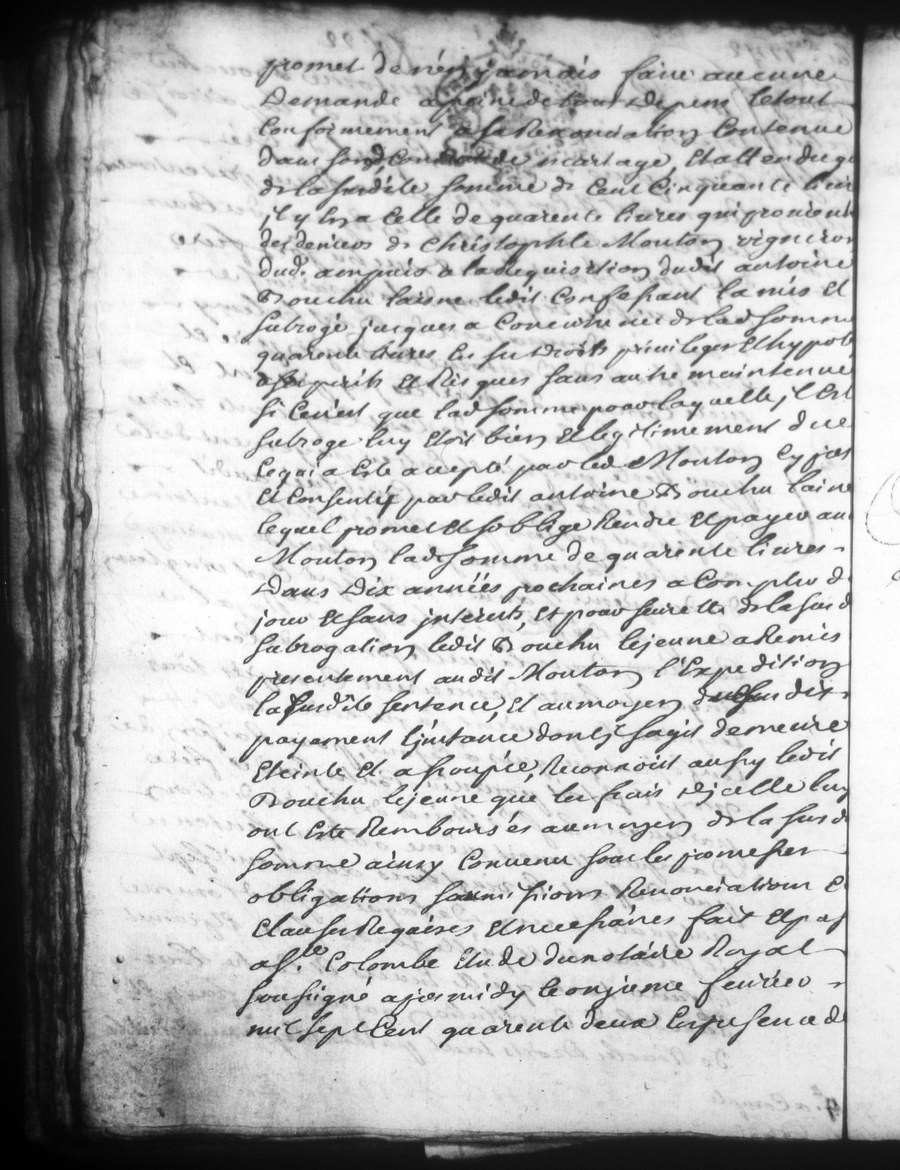 promet de n'en jamais faire aucune
Demande a peine de tous depens le tout
Conformement a sa Renonciation Contenue
dans son Contrat de mariage, Et attendu qu
de la susd.te somme de Cent Cinquante livr
jl y En a Celle de quarente livres qui provient
des deniers de Christophle Mouton vigneron
dud. ampuis a la Requisition dudit antoine
Bouchu laisne ledit Confessant la mis Et
subrogé jusques a Concurrence de lad somme
quarente livres En ses droits privileges Et hypot
a ses perils Et Risques sans autre maintenue
si Ce n'est que lad somme pour laquelle jl Est
subroge luy Etoit bien Et legitimement due
Ce qui a Este accepté par led Mouton Cy pres
Et Consentis par ledit antoine Bouchu laine
lequel promet Et soblige Rendre Et payer au
Mouton lad somme de quarente livres
Dans Dix années prochaines a Compter d
jour Et sans interets, Et pour seurette de la susd
subrogation ledit Bouchu lejeune a Remis
presentement audit Mouton l'Expedition
la susd.te sentence, Et au moyen du susdit
payement L'jnstance dont jl sagit demeure
Eteinte Et assoupie, Reconnoit aussy ledit
Bouchu lejeune que les frais dicelle luy
ont Este Rembourses au moyen de la susd
somme ainsy Convenu sous les promesses
obligations soumissions Renonciations E
Clauses Requises Et necessaires fait Et pas
a S.te Colombe Etude du notaire Royal
soussigné apres midy le onzieme fevrier
mil sept Cent quarente deux En presence d